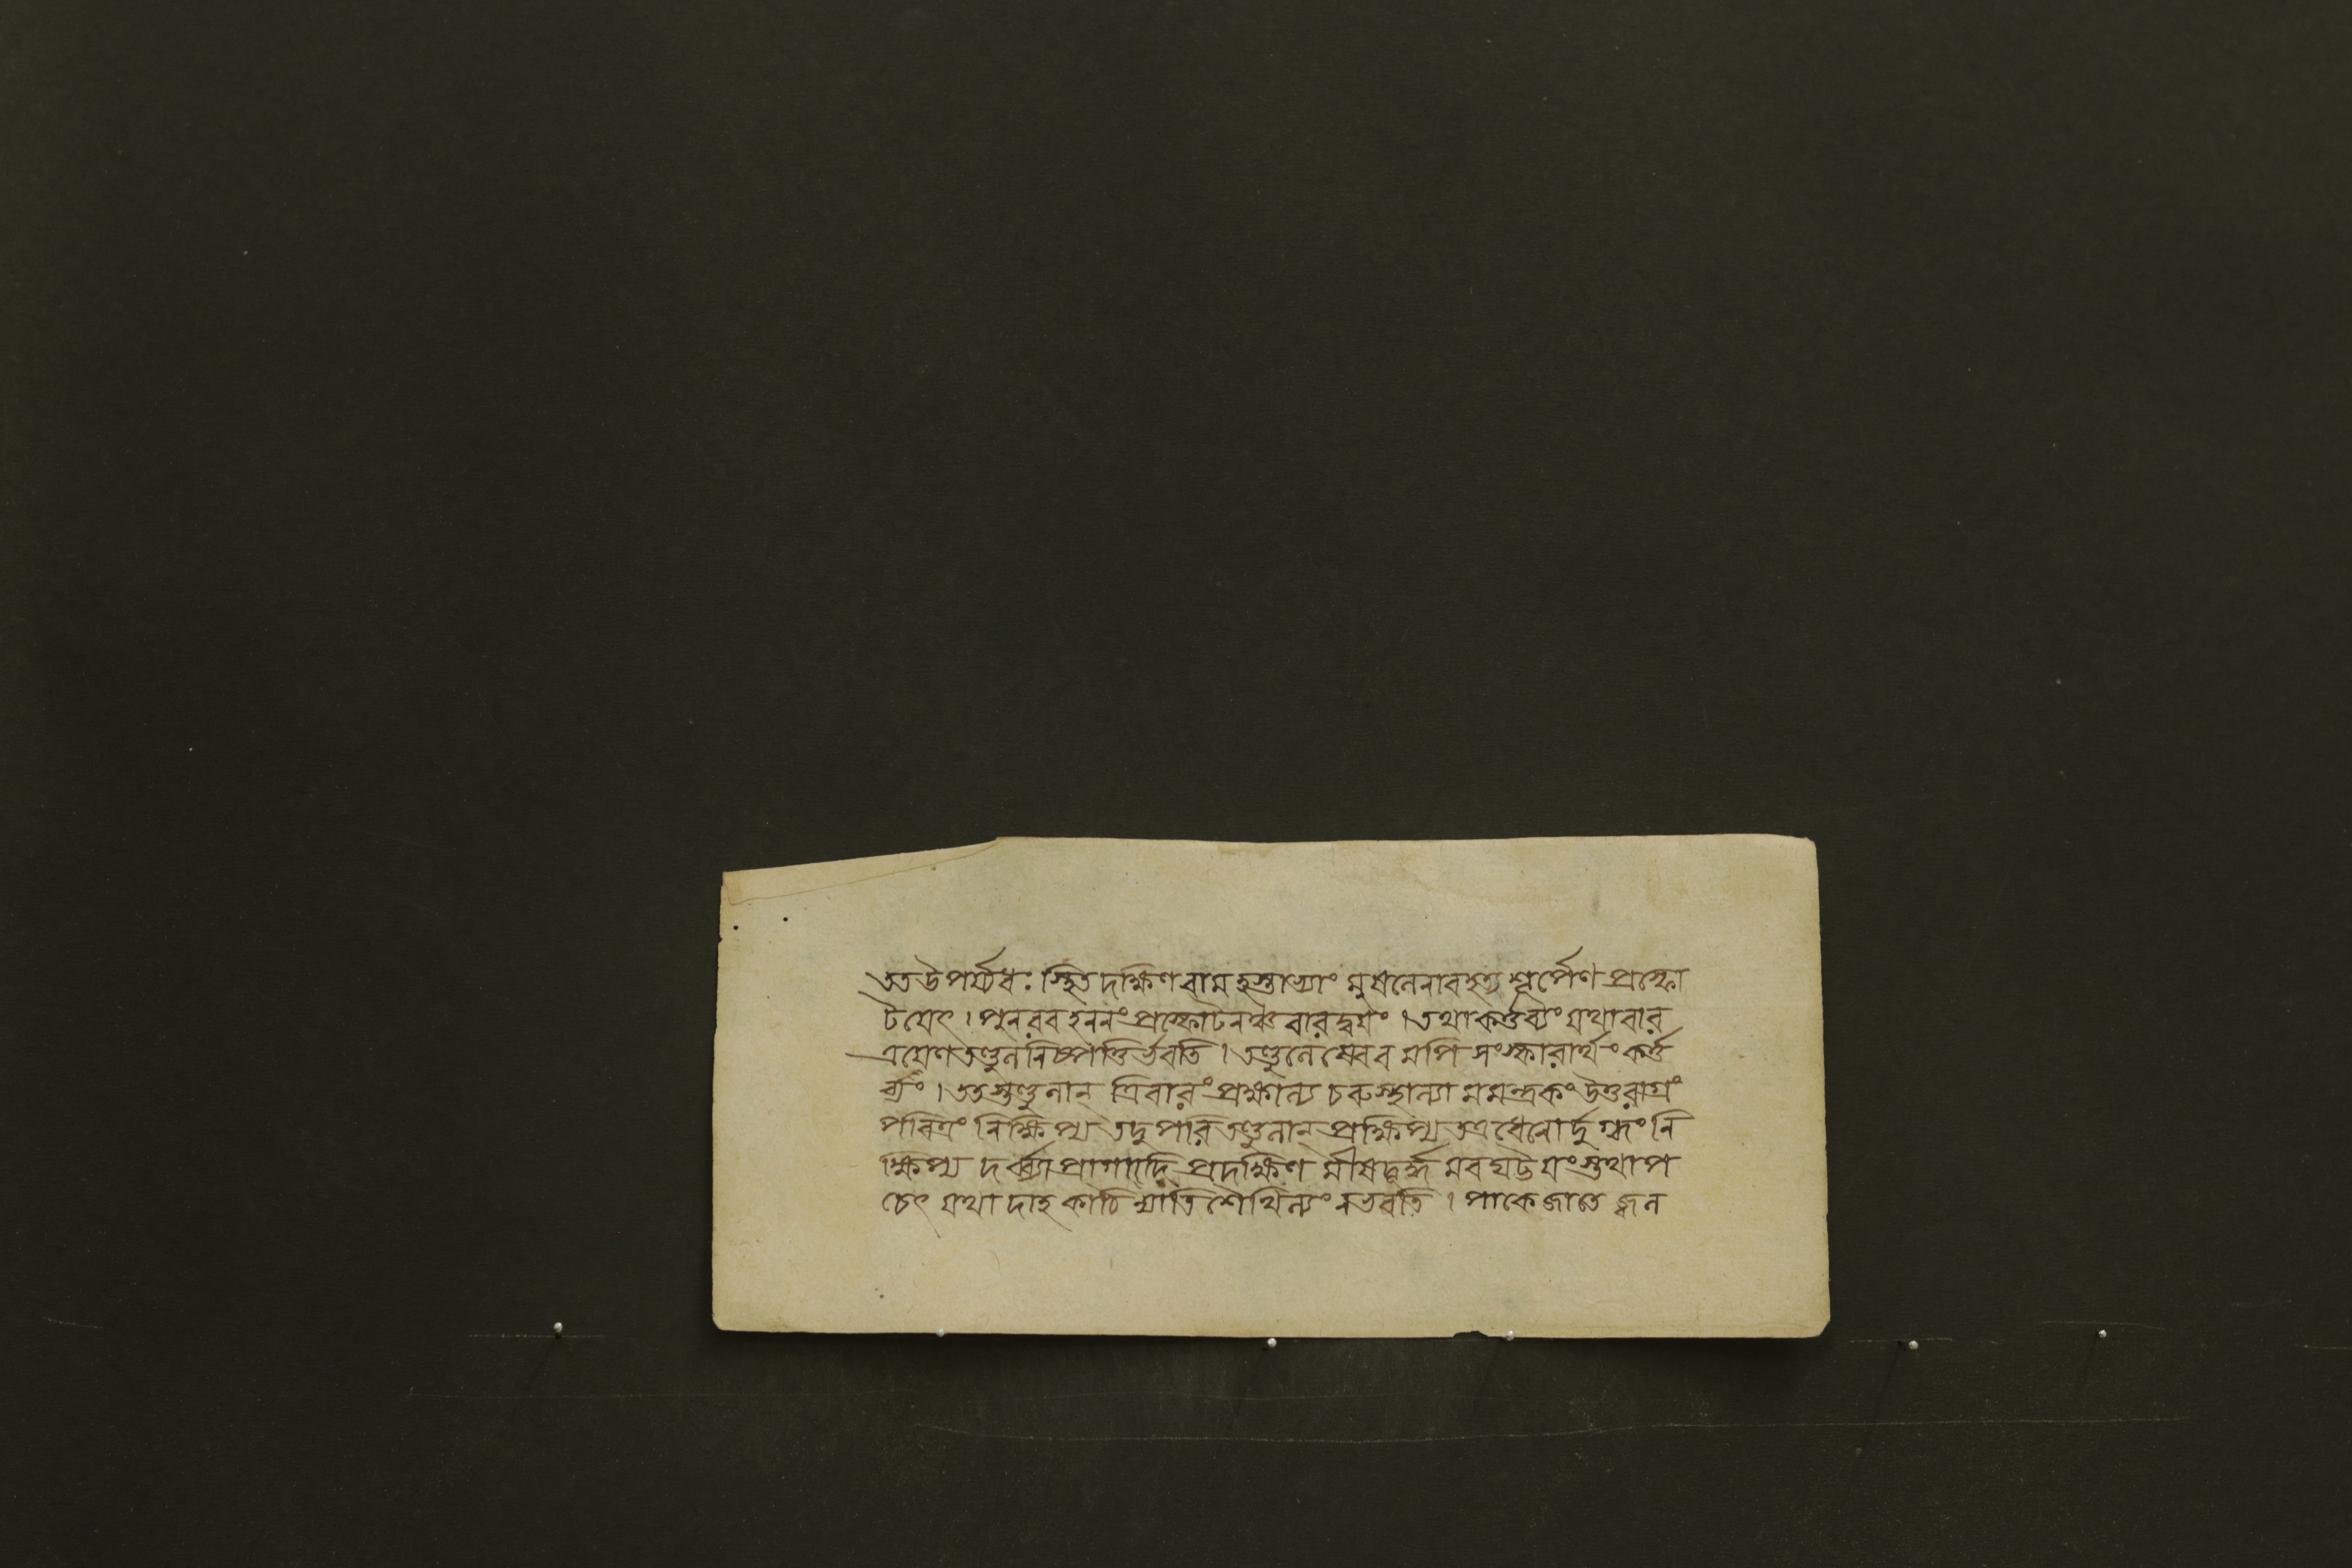 তত উপর্য্যধঃ স্থিত দক্ষিণ বাম হস্তাভ্যাং মুষলেনাবহত্য শূর্পেণ প্রস্ফো
টয়েৎ । পুনরবহননং প্রস্ফোটনঞ্চ বারদ্বয়ং । তথা কর্ত্তব্যং যথা বার
ত্রয়েণ তণ্ডুলনিষ্পত্তির্ভবতি । তণ্ডুলেষ্বেবমপি সংস্কারার্থং কর্ত্ত
ব্যং । ততস্তণ্ডুলান্ ত্রিবারং প্রক্ষাল্য চরুস্থাল্যামমন্ত্রকং উত্তরাগ্রং
পবিত্রং নিক্ষিপ্য তদুপরি তণ্ডুলান্ প্রক্ষিপ্য তত্র ধেনোর্দুগ্ধং নি
ক্ষিপ্য দর্ব্ব্যা প্রাগাদি প্রদক্ষিণ মীষদূর্দ্ধ্ব মবঘট্টয়ংস্তথা প
চেৎ যথা দাহ কাঠিন্যাতি শৈথিল্যং ন ভবতি । পাকে জাতে জ্বল